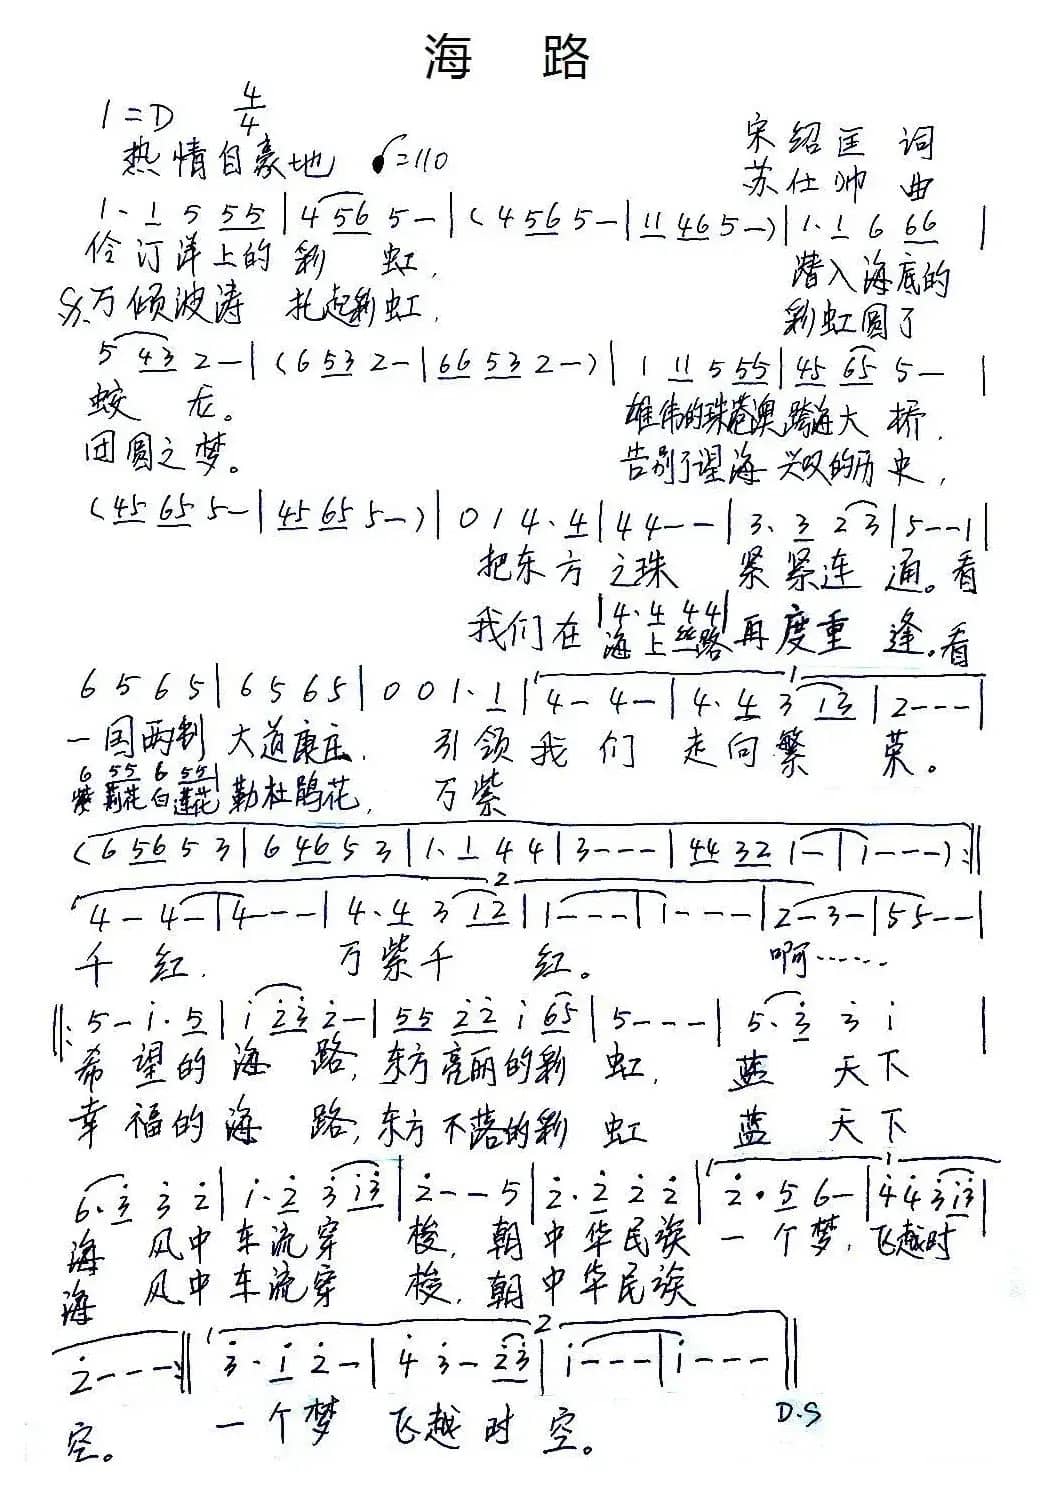 海 路
1=D 4/4
热情自豪地 ♩=110
宋绍匡 词
苏仕帅 曲
1· 1 5 55 | 4 56 5 — | ( 4 56 5 — | 11 46 5 — ) | 1· 1 6 66 |
伶仃洋上的彩 虹, 潜入海底的
万倾波涛 托起彩虹, 彩虹圆了
5 43 2 — | ( 6 53 2 — | 66 53 2 — ) | 1 11 5 55 | 45 65 5 — |
蛟 龙。 雄伟的珠港澳跨海大 桥,
团圆之梦。 告别了望海兴叹的历史,
( 45 65 5 — | 45 65 5 — ) | 0 1 4· 4 | 4 4 — — | 3· 3 2 3 | 5 — — 1 |
把东方之珠 紧紧连 通。看
|4· 4 44|
我们在海上丝路再度重 逢。看
6 5 6 5 | 6 5 6 5 | 0 0 1· 1 | 4 — 4 — | 4· 4 3 13 | 2 — — — |
一国两制 大道康庄, 引领我 们 走向繁 荣。
6 55 6 55
紫荆花白莲花勒杜鹃花, 万紫
( 6 56 5 3 | 6 46 5 3 | 1· 1 4 4 | 3 — — — | 44 32 1 — | 1 — — — ) :‖
2
4 — 4 — | 4 — — — | 4· 4 3 12 | 1 — — — | 1 — — — | 2 — 3 — | 5 5 — — |
千 红, 万紫千 红。 啊……
‖: 5 — i· 5 | i 23 2 — | 55 22 i 65 | 5 — — — | 5· 3 3 i |
希 望的海 路,东方亮丽的彩 虹, 蓝 天下
幸 福的海 路,东方不落的彩 虹 蓝 天下
6· 3 3 2 | i· 2 3 i3 | 2 — — 5 | 2· 2 2 2 | 2· 5 6 — | 4 4 3 i3 |
海 风中车流穿 梭,朝中华民族一个梦,飞越时
海 风中车流穿 梭,朝中华民族
2 — — — :‖ 3· i 2 — | 4 3 — 23 | i — — — | i — — — ‖
空。 一个梦 飞越时空。
D.S